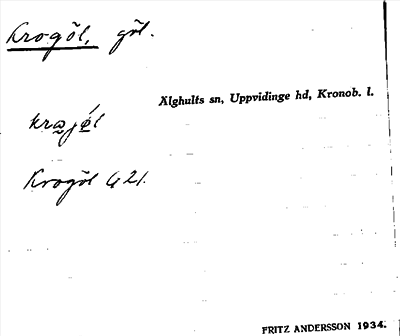 Krogöl, göl.
Älghults sn, Uppvidinge hd, Kronob. l.
krajǿl
Krogöl G 21.
FRITZ ANDERSSON 1934.